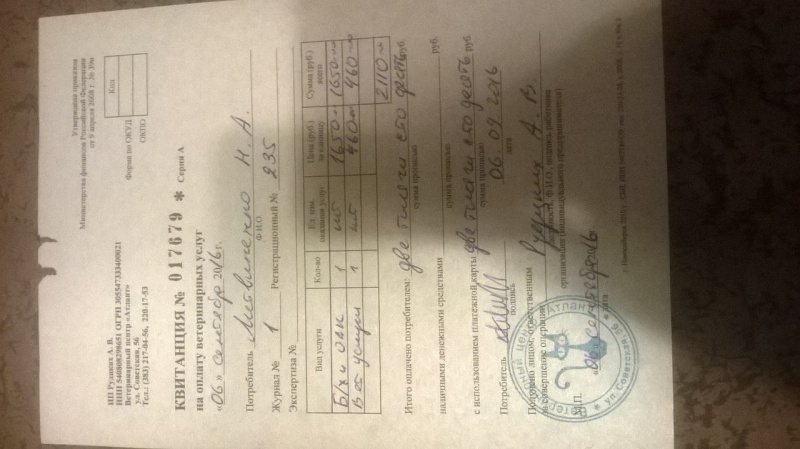 Утверждена приказом
Министерства финансов Российской Федерации
от 9 апреля 2008 г. № 39н
Код
Форма по ОКУД
ОКПО
ИП Рудаких А. В.
ИНН 540808298651 ОГРН 305547333400021
Ветеринарный центр «Атлант»
ул. Советская, 56
Тел.: (383) 217-04-56, 220-17-53
КВИТАНЦИЯ № 017679 * Серия А
на оплату ветеринарных услуг
«06» сентября 2016 г.
Потребитель Литвиненко Н. А.
Ф.И.О
Журнал № 1 Регистрационный № 235
Экспертиза №
Вид услуги Кол-во Ед. изм. оказания услуг Цена (руб.) за единицу Сумма (руб.) всего
Б/хи ОАК 1 шт 1650 1650
Вет услуги 1 шт 460 460
2110
Итого оплачено потребителем: две тысячи сто десять руб.
сумма прописью
наличными денежными средствами руб.
сумма прописью
с использованием платежной карты две тысячи сто десять руб.
сумма прописью
Потребитель 06.09.2016
подпись дата
Получено лицом, ответственным А. В.
за совершение операции
организации (индивидуального предпринимателя)
М.П. «06» сентября 16
дата